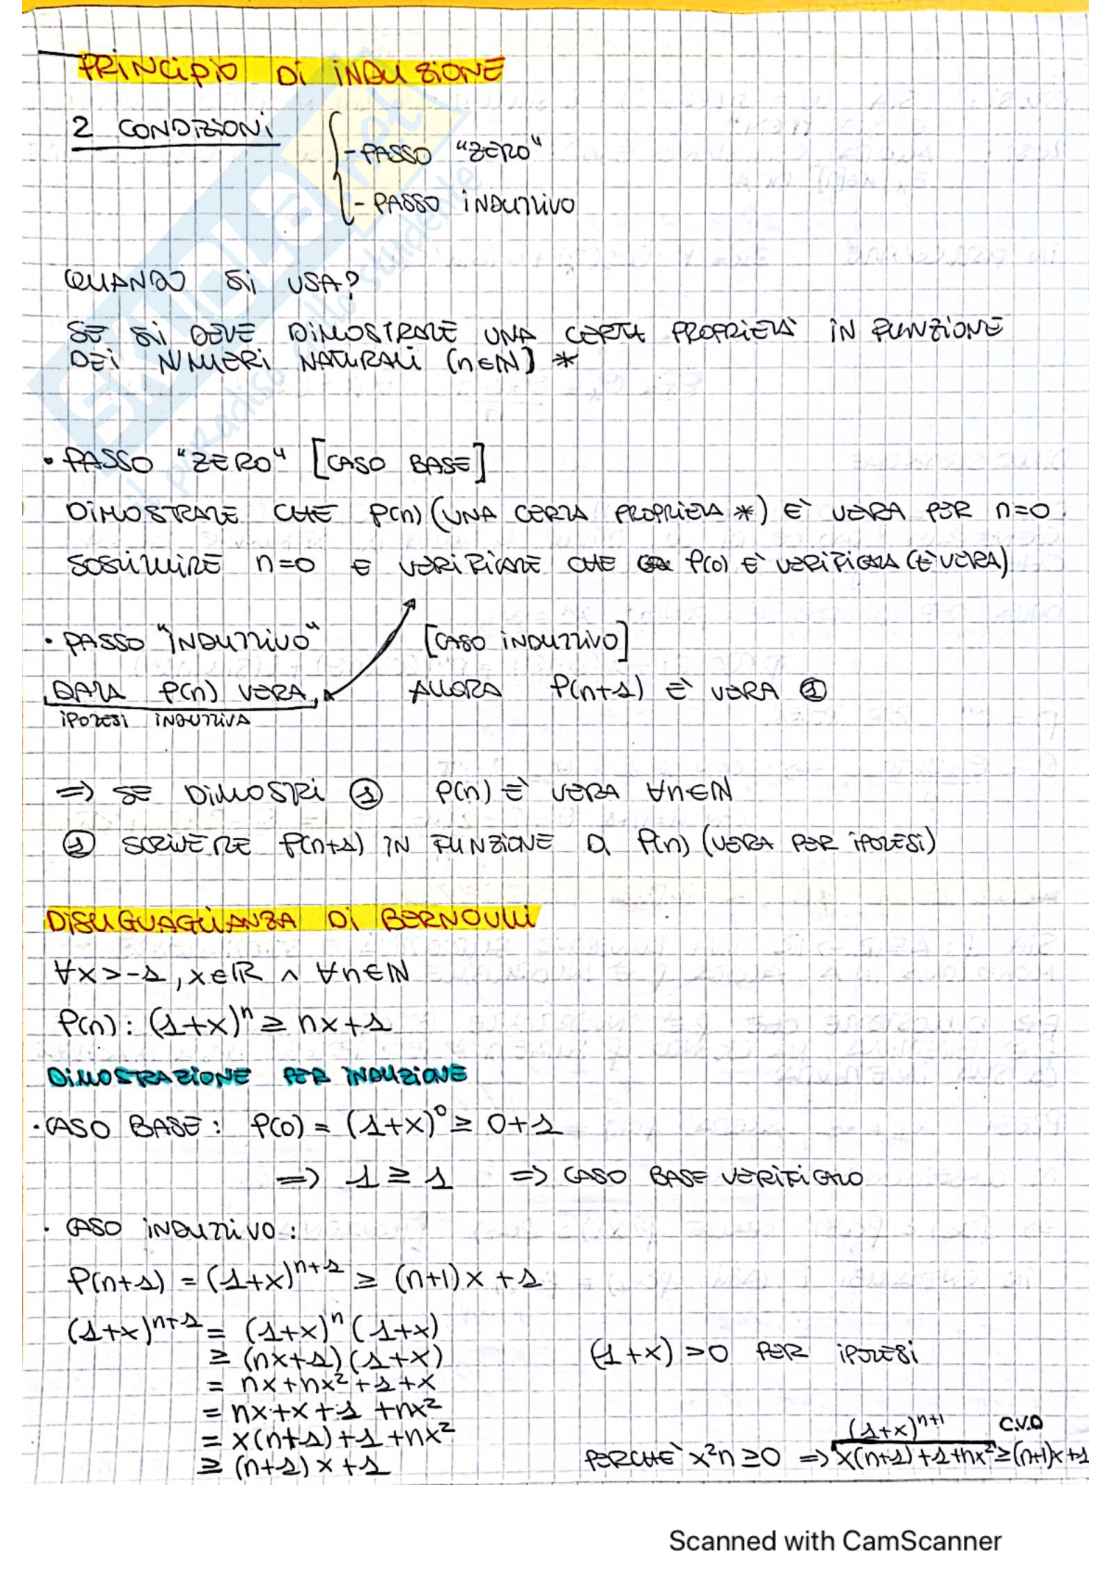 PRINCIPIO DI INDUZIONE
2 CONDIZIONI { - PASSO "ZERO"
- PASSO INDUTTIVO
QUANDO SI USA?
SE SI DEVE DIMOSTRARE UNA CERTA PROPRIETÀ IN FUNZIONE
DEI NUMERI NATURALI (n∈ℕ) *
• PASSO "ZERO" [CASO BASE]
DIMOSTRARE CHE P(n) (UNA CERTA PROPRIETÀ *) È VERA PER n=0.
SOSTITUIRE n=0 E VERIFICARE CHE P(0) È VERIFICATA (È VERA)
• PASSO "INDUTTIVO" [CASO INDUTTIVO]
DATA P(n) VERA, ALLORA P(n+1) È VERA ①
IPOTESI INDUTTIVA
=> SE DIMOSTRI ① P(n) È VERA ∀n∈ℕ
① SCRIVERE P(n+1) IN FUNZIONE DI P(n) (VERA PER IPOTESI)
DISUGUAGLIANZA DI BERNOULLI
∀x>-1, x∈ℝ ∧ ∀n∈ℕ
P(n): (1+x)ⁿ ≥ nx+1
DIMOSTRAZIONE PER INDUZIONE
• CASO BASE: P(0) = (1+x)⁰ ≥ 0+1
=> 1 ≥ 1 => CASO BASE VERIFICATO
• CASO INDUTTIVO:
P(n+1) = (1+x)ⁿ⁺¹ ≥ (n+1)x+1
(1+x)ⁿ⁺¹ = (1+x)ⁿ(1+x)
≥ (nx+1)(1+x) (1+x)>0 PER IPOTESI
= nx+nx²+1+x
= nx+x+1+nx²
= x(n+1)+1+nx² (1+x)ⁿ⁺¹ C.V.D
≥ (n+1)x+1 PERCHÈ x²n≥0 => x(n+1)+1+nx²≥(n+1)x+1
Scanned with CamScanner